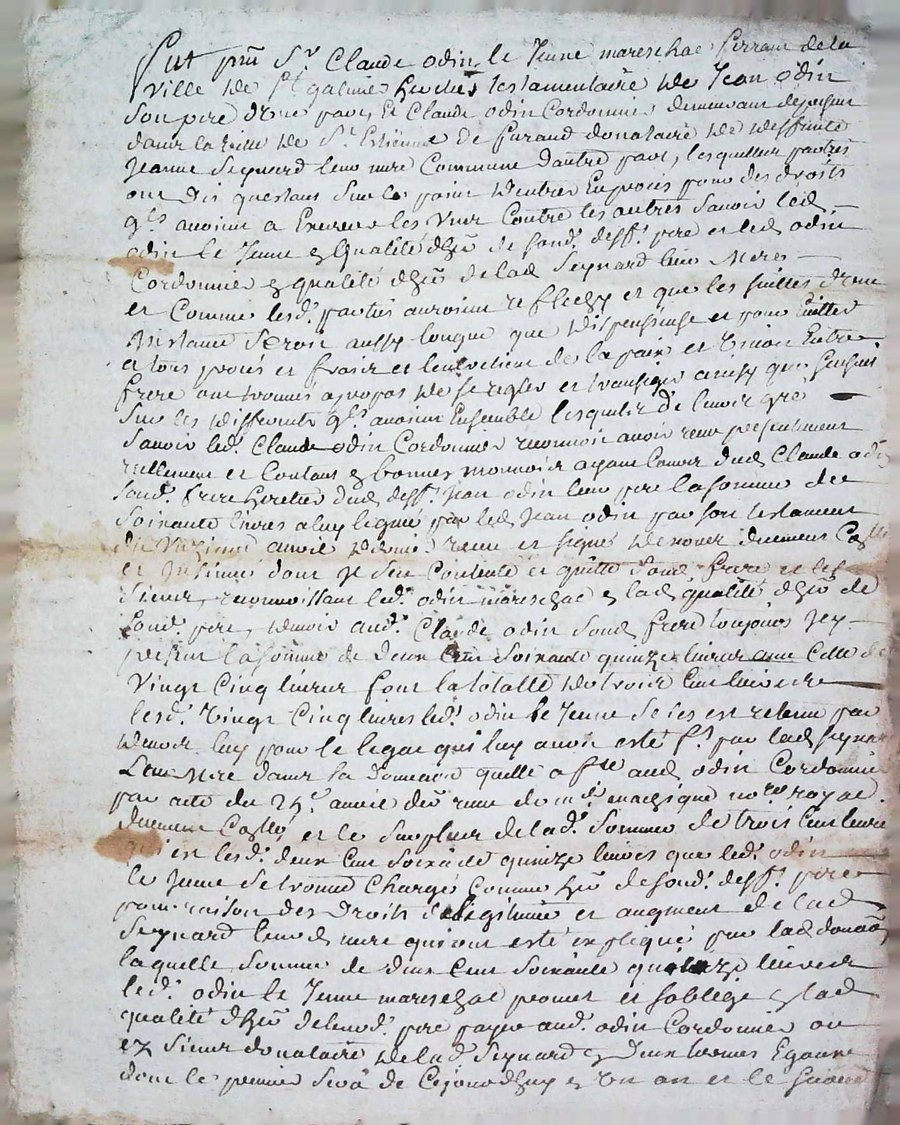 Fut pnt Sr Claude odin le Jeune mareschal ferrant de la
ville de St galmier heritier testamentaire de Jean odin
son pere d'une part, Et Claude odin Cordonnier demeurant
dans la ville de St Estienne de furand donataire de deffunte
Jeanne Seynard leur mere Commune d'autre part, lesquelles parties
ont dis questans sur le point d'entrer En procés pour des droits
qls avoient a Exercer les Uns Contre les autres Savoir led
odin le Jeune en qualité d'hér de fond. deff. pere et led odin
Cordonnier en qualité d'hér de lad Seynard leur Mere
et Comme lesd. parties auroient reflechy et que les suittes d'une
instance seroit aussy longue que dispensieuse et pour Eviter
a tous procés et fraix et lentretien de la paix et Union Entre
frere ont trouvés a propos de se regler et transiger ainsy que sensuit
Sur les differents qls avoient Ensemble lesquels de leur gré
Savoir led. Claude odin Cordonnier reconnoit avoir receu presentement
reellement et Contant en bonnes monnoies ayant Cours dud Claude odin
sond. frere heretier dud deff. Jean odin leur pere la somme de
Soixante livres a luy legué par led Jean odin par son testament
du avril dernier receu et signé duement Collé
et Insinué dont Il sen Contente et quitte sond frere et les
siens, reconnoissant led. odin mareschal en lad qualité d'hér de
sond. pere, devoir aud. Claude odin sond frere toujours
present la somme de deux Cent Soixante quinze livres avec Celle de
Vingt Cinq livres font la totalle de trois Cent livres
lesd. Vingt Cinq livres led. odin le Jeune se les est retenu par
devoir luy pour le legat qui luy avoit esté ft par lad Seynard
Leur Mere dans la donnaon quelle a fte aud odin Cordonnier
par acte du 25e avril der receu de me no.re royal
duement Collé et le surplus de lad. somme de trois Cent livres
qui est lesd. deux Cent soixante quinze livres que led. odin
le Jeune se trouve Chargé Comme hér de sond. deff. pere
pour raison des Droits de legitime et augment de lad
Seynard leurd mere qui ont esté expliqué par lad donaon
laquelle somme de deux Cent soixante quinze livres
led. odin le Jeune mareschal promet et soblige en lad
qualité d'hér de leurd. pere payer aud. odin Cordonnier ou
es siens donataire de lad. Seynard en deux termes Egaux
dont le premier sera de Cejourdhuy en Un an et le second